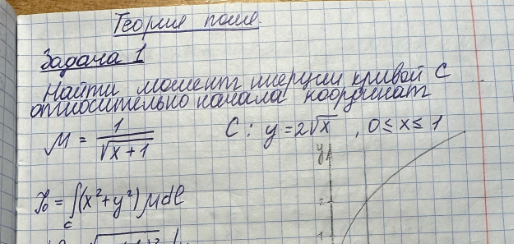 Теория поля.
Задача 1
Найти момент инерции кривой C
относительно начала координат
M = 1/√(x+1)   C: y = 2√x, 0 ≤ x ≤ 1
y
2
J₀ = ∫_C (x² + y²) μ dl
1